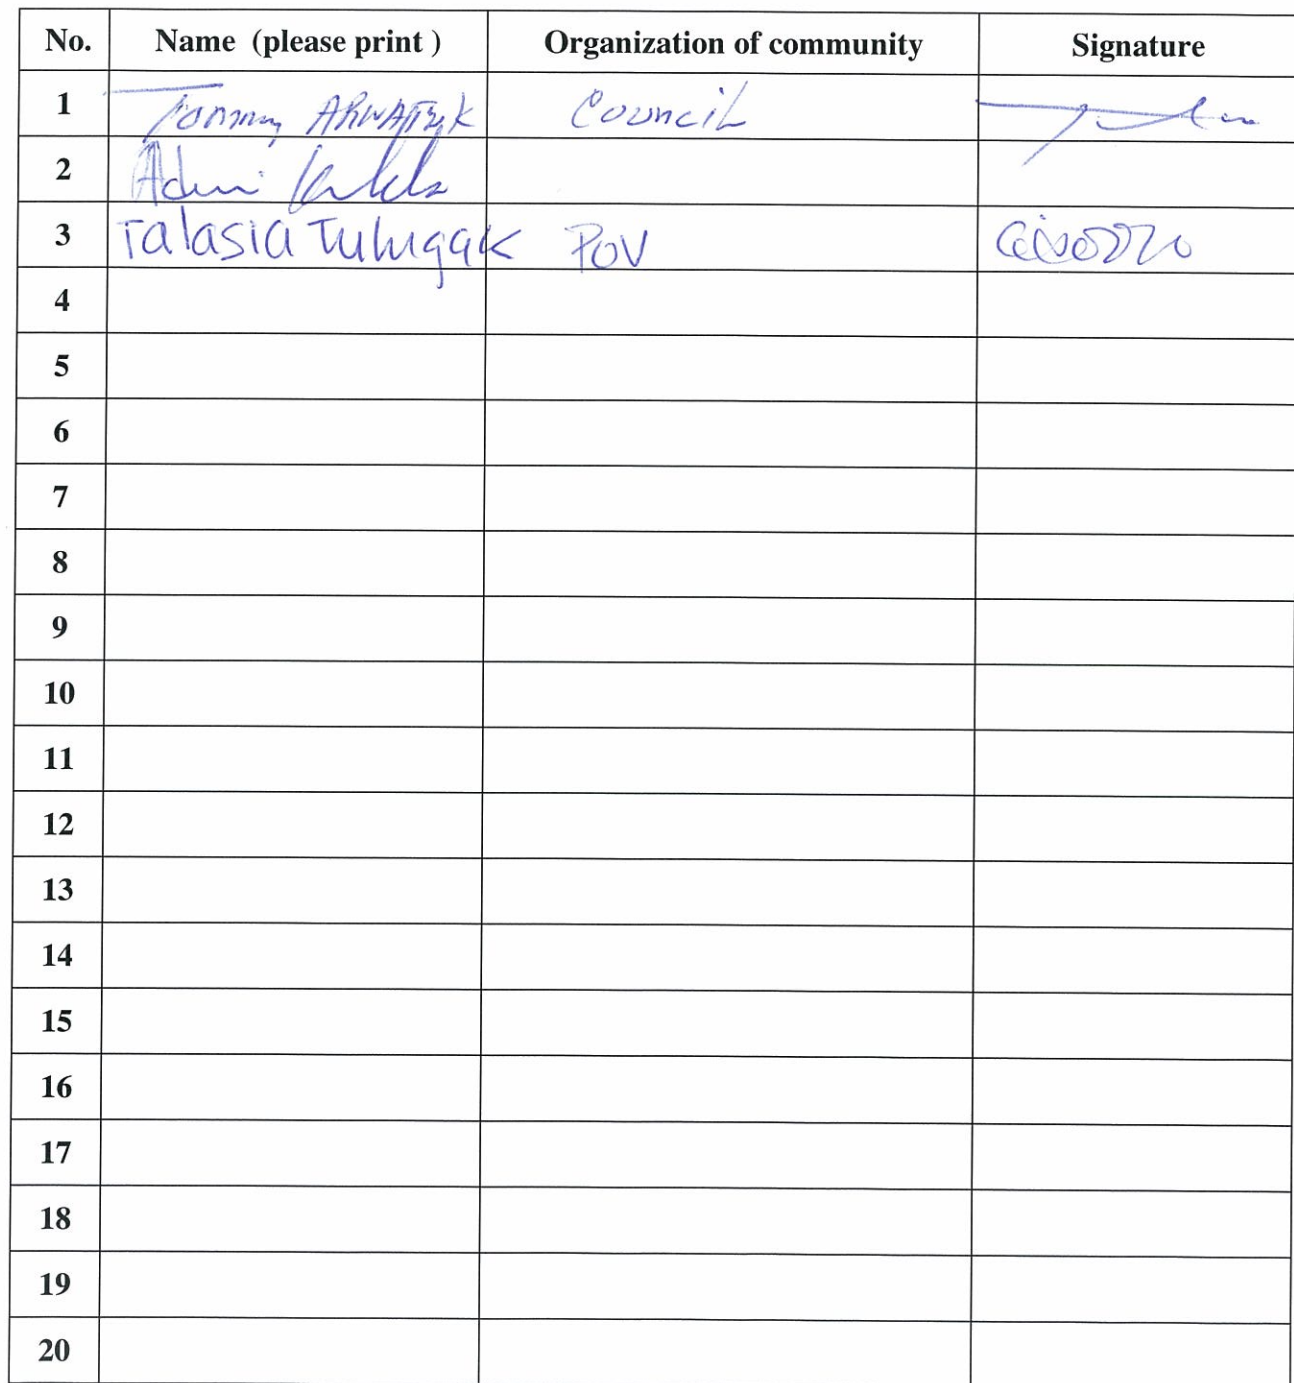 No. Name (please print ) Organization of community Signature
1 Tommy Council
2
3 Talasia Tulugak POV
4
5
6
7
8
9
10
11
12
13
14
15
16
17
18
19
20